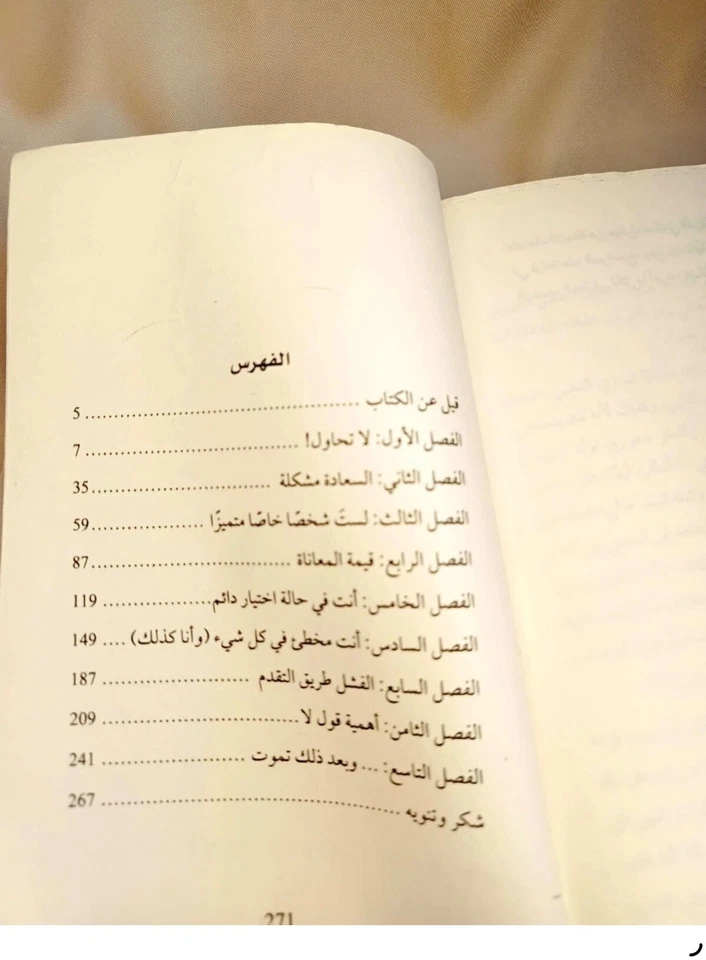 الفهرس
قيل عن الكتاب ........................................ 5
الفصل الأول: لا تحاول! ............................... 7
الفصل الثاني: السعادة مشكلة ......................... 35
الفصل الثالث: لستَ شخصًا خاصًا متميزًا .................. 59
الفصل الرابع: قيمة المعاناة ............................ 87
الفصل الخامس: أنت في حالة اختيار دائم................... 119
الفصل السادس: أنت مخطئ في كل شيء (وأنا كذلك) .... 149
الفصل السابع: الفشل طريق التقدم ..................... 187
الفصل الثامن: أهمية قول لا............................ 209
الفصل التاسع: ... وبعد ذلك تموت ..................... 241
شكر وتنويه .......................................... 267
271